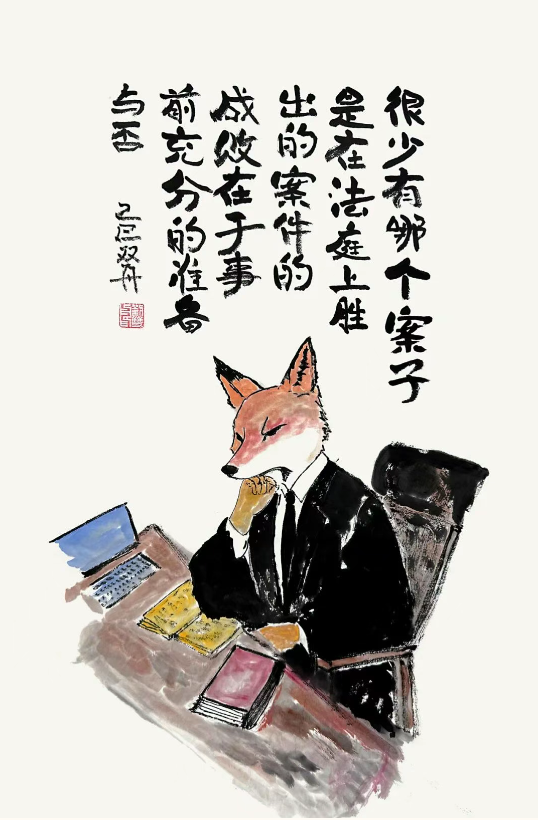 很少有哪个案子
是在法庭上胜
出的案件的
成败在于事
前充分的准备
与否
乙巳双丹